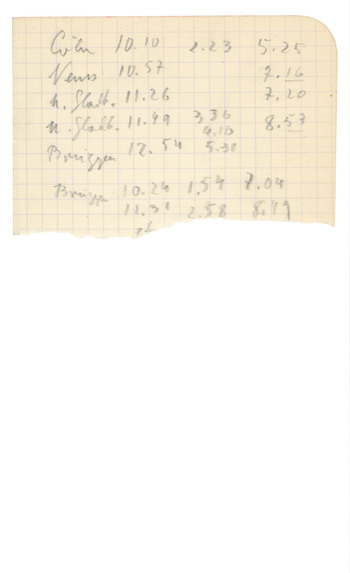 Cöln 10.10 2.23 5.25
Neuss 10.57 7.16
M. Gladb. 11.26 7.20
M. Gladb. 11.49 3.36 8.53
4.10
Brüggen 12.54 5.30
Brüggen 10.24 1.54 7.04
11.31 2.58 8.49